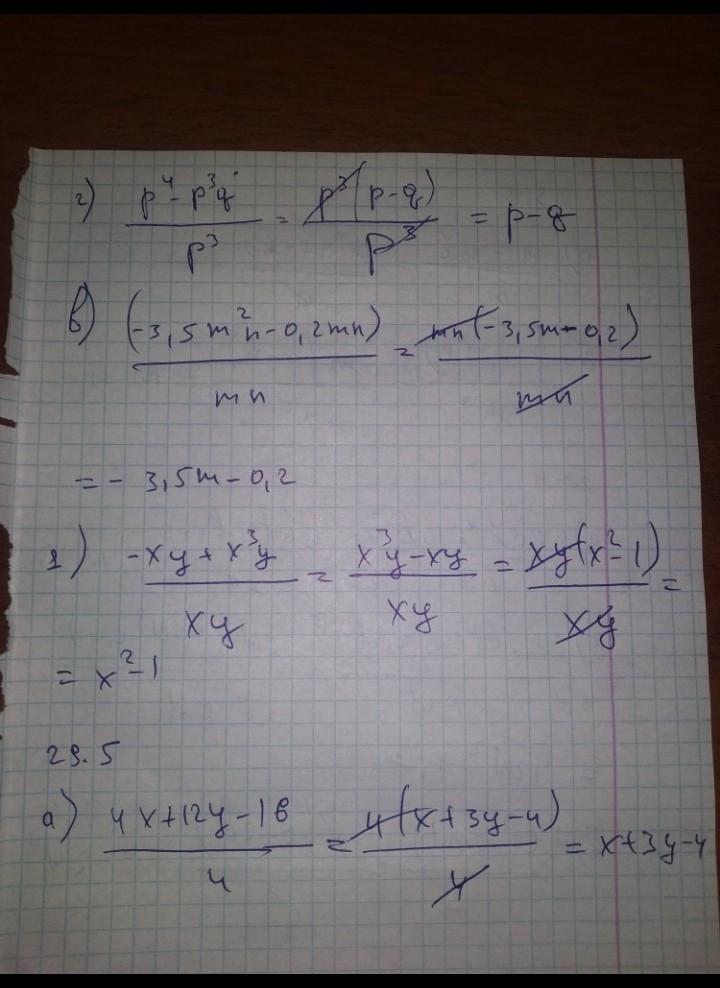 г) (p⁴ - p³q) / p³ = p³(p-q) / p³ = p-q
в) (-3,5m²n-0,2mn) / mn = mn(-3,5m-0,2) / mn
= - 3,5m-0,2
г) (-xy + x³y) / xy = (x³y-xy) / xy = xy(x²-1) / xy =
= x²-1
29.5
а) (4x+12y-16) / 4 = 4(x+3y-4) / 4 = x+3y-4